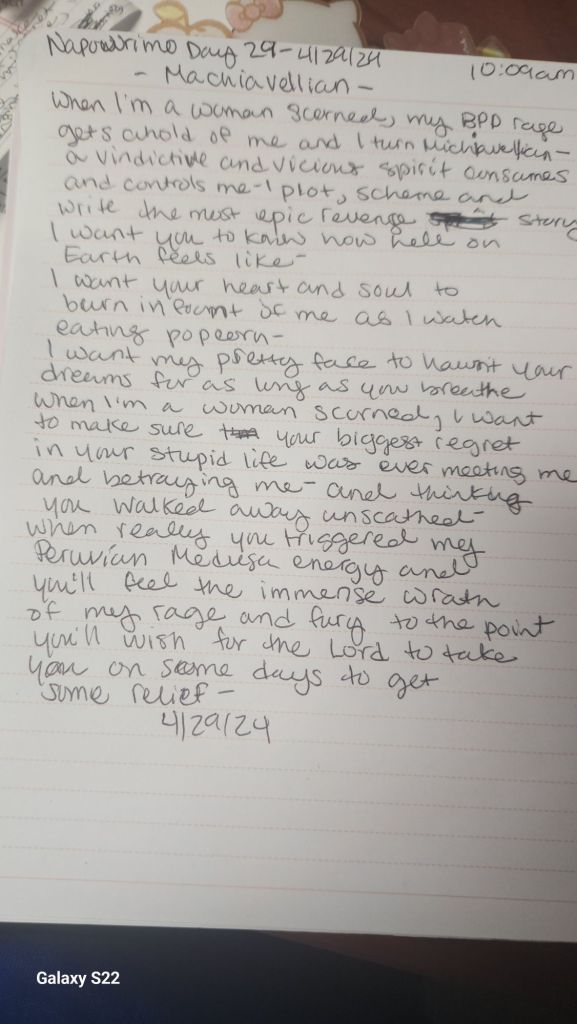 NaPoWriMo Day 29-4/29/24
10:09am
- Machiavellian -
When I'm a woman scorned, my BPD rage
gets ahold of me and I turn Michiavellian-
a vindictive and vicious spirit consumes
and controls me-I plot, scheme and
write the most epic revenge story
I want you to know how hell on
Earth feels like-
I want your heart and soul to
burn in front of me as I watch
eating popcorn-
I want my pretty face to haunt your
dreams for as long as you breathe
When I'm a woman scorned, I want
to make sure your biggest regret
in your stupid life was ever meeting me
and betraying me- and thinking
you walked away unscathed-
when really you triggered my
Peruvian Medusa energy and
you'll feel the immense wrath
of my rage and fury to the point
you'll wish for the Lord to take
you on some days to get
some relief-
4/29/24
Galaxy S22